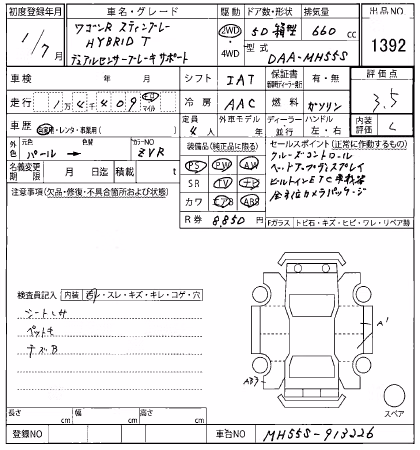 初度登録年月
車名・グレード
駆動
ドア数・形状
排気量
出品NO
1/7月
ワゴンR スティングレー
HYBRID T
デュアルセンサーブレーキサポート
2WD
・
4WD
5D 箱型
660cc
型式
DAA-MH55S
1392
車検 年 月
シフト
IAT
保証書
有・無
評価点
3.5
走行 1万4409
km
マイル
冷房
AAC
燃料
ガソリン
車歴 自家用・レンタ・事業用( )
定員
4人
外車モデル
年
ディーラー
並行
ハンドル
左・右
内装評価
C
外色
元色
パール →
色替
カラーNO
ZVR
装備品(純正品に限る)
セールスポイント(正常に作動するもの)
名義変更期限 月 日迄
積載 t
PS PW AW
SR TV ナビ
カワ エアB ABS
R券 8,850円
クルーズコントロール
ヘッドアップディスプレイ
ビルトインETC車載器
全方位カメラパッケージ
注意事項(欠品・修復・不具合箇所および状態)
Fガラス トビ石・キズ・ヒビ・ワレ・リペア勝
検査員記入 内装 汚レ・スレ・キズ・キレ・コゲ・穴
シートシサ
ペットキ
キズB
A1
AB3
スペア
長さ cm
幅 cm
高さ cm
登録NO
車台NO
MH55S-913226